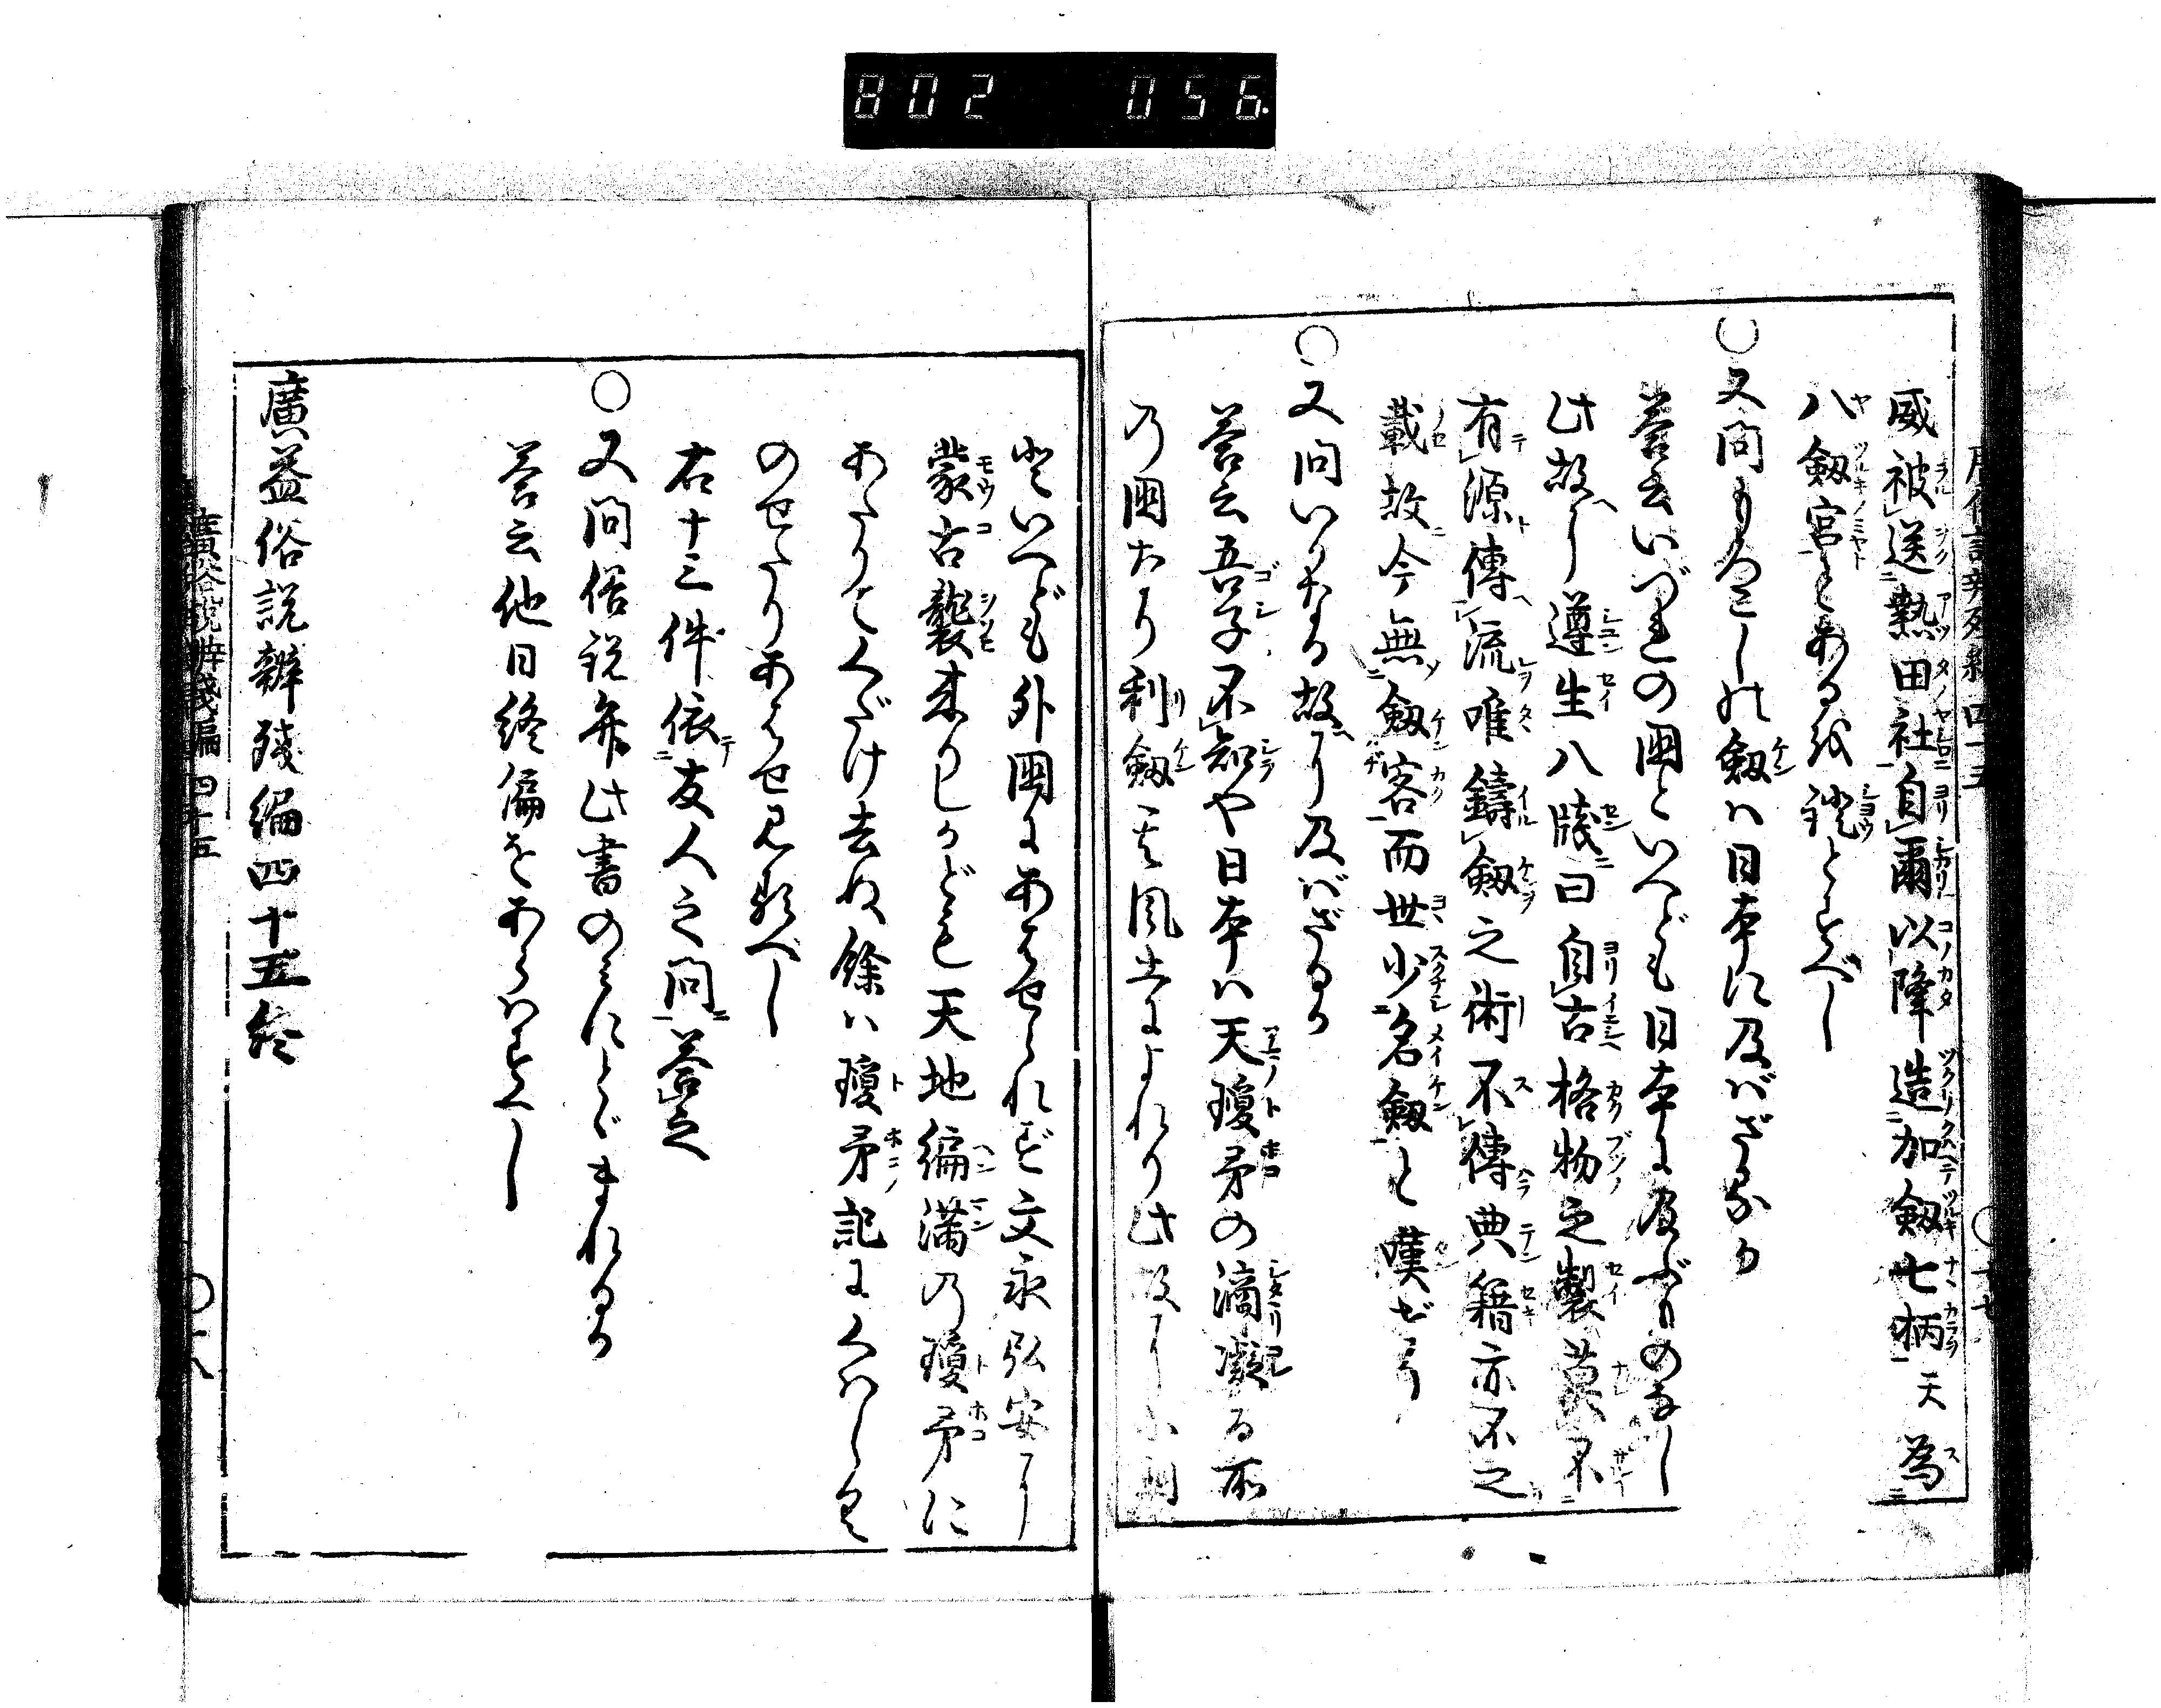 802 056
威被送熱田社自爾以降造加劔七柄天為
八劔宮とあるを證とすべし
○又問もろこしの劔ハ日本に及ばざるか
答云いづれの国といへども日本に及ぶものなし
此故に遵生八牋曰自古格物之製莫不
有源傳流唯鑄劔之術不傳典籍亦不之
載故今無劔客而世少名劔と嘆ぜり
○又問いかなる故に及ばざるか
答云吾子不知や日本ハ天瓊矛の滴凝る所
乃国なり利劔其風土によれり此故に小朝
といへども外国にあなどられず文永弘安に
蒙古襲来りしかども天地徧満乃瓊矛に
あたりてくだけ去ぬ餘ハ瓊矛記にくハしく
のせたりあハせ見るべし
右十三件依友人之問答之
○又問俗説弁此書のミにとゞまれるか
答云他日終偏をあらハすべし
廣益俗説辨殘編四十五終
廣俗説辨殘編 四十五